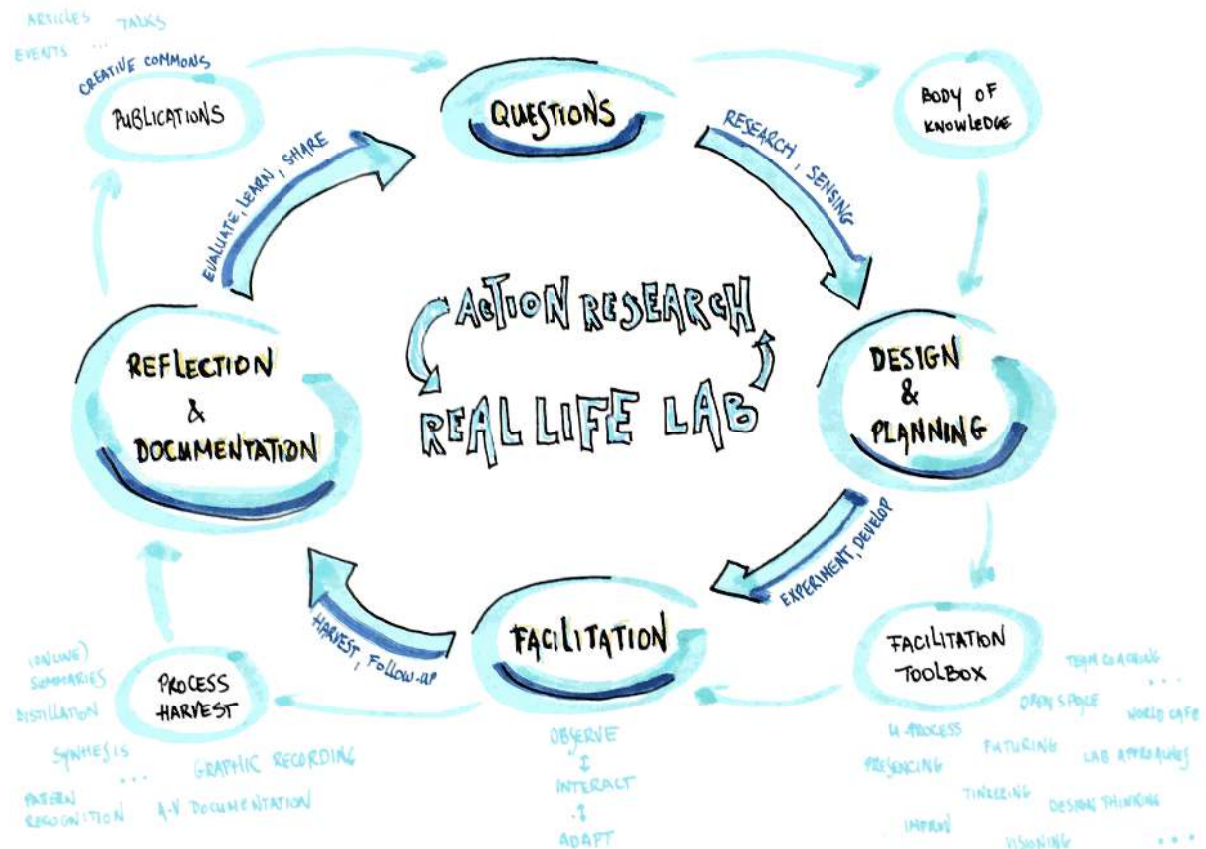 ARTICLES
TALKS
EVENTS ...
CREATIVE COMMONS
PUBLICATIONS
QUESTIONS
BODY OF
KNOWLEDGE
EVALUATE, LEARN, SHARE
RESEARCH, SENSING
ACTION RESEARCH
REAL LIFE LAB
REFLECTION
&
DOCUMENTATION
DESIGN
&
PLANNING
EXPERIMENT, DEVELOP
HARVEST, FOLLOW-UP
FACILITATION
FACILITATION
TOOLBOX
PROCESS
HARVEST
(ONLINE)
SUMMARIES
DISTILLATION
SYNTHESIS
...
GRAPHIC RECORDING
PATTERN
RECOGNITION
A-V DOCUMENTATION
OBSERVE
INTERACT
ADAPT
TEAM COACHING
...
OPEN SPACE
WORLD CAFE
U-PROCESS
FUTURING
LAB APPROACHES
PRESENCING
TINKERING
DESIGN THINKING
IMPROV
VISIONING
...